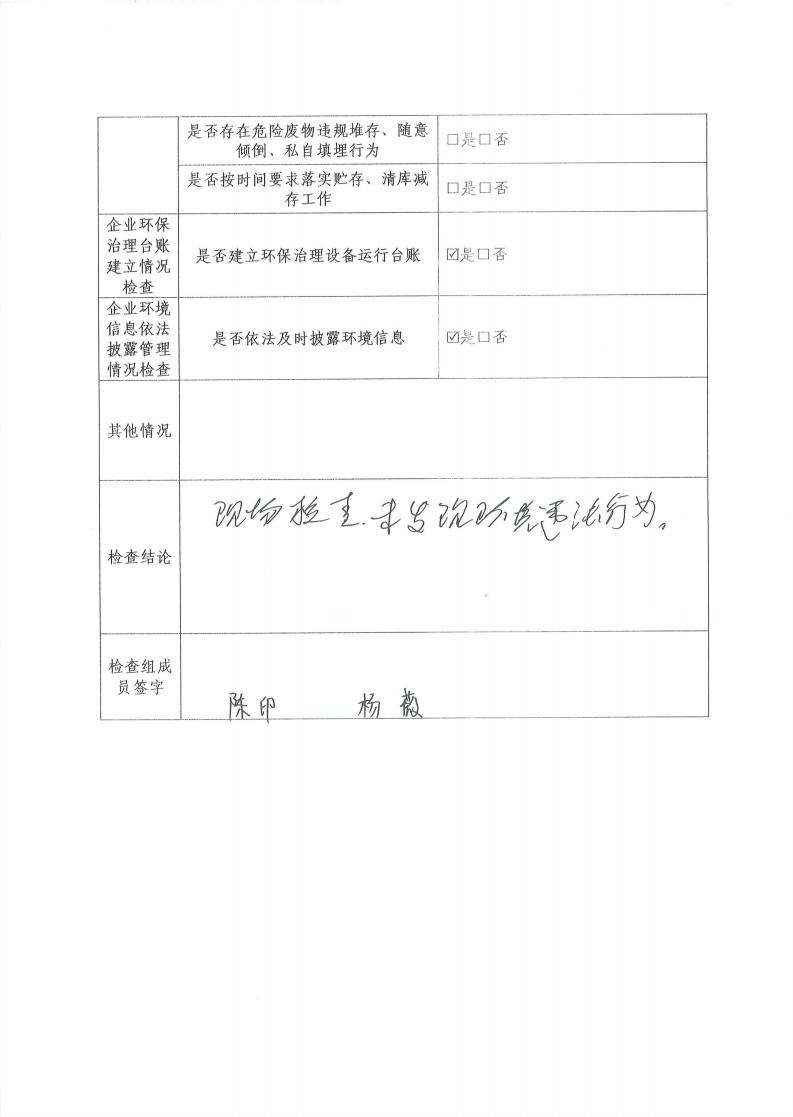 是否存在危险废物违规堆存、随意
倾倒、私自填埋行为
□是□否
是否按时间要求落实贮存、清库减
存工作
□是□否
企业环保
治理台账
建立情况
检查
是否建立环保治理设备运行台账
☑是□否
企业环境
信息依法
披露管理
情况检查
是否依法及时披露环境信息
☑是□否
其他情况
检查结论
现场检查.未发现环境违法行为。
检查组成
员签字
陈印 杨薇